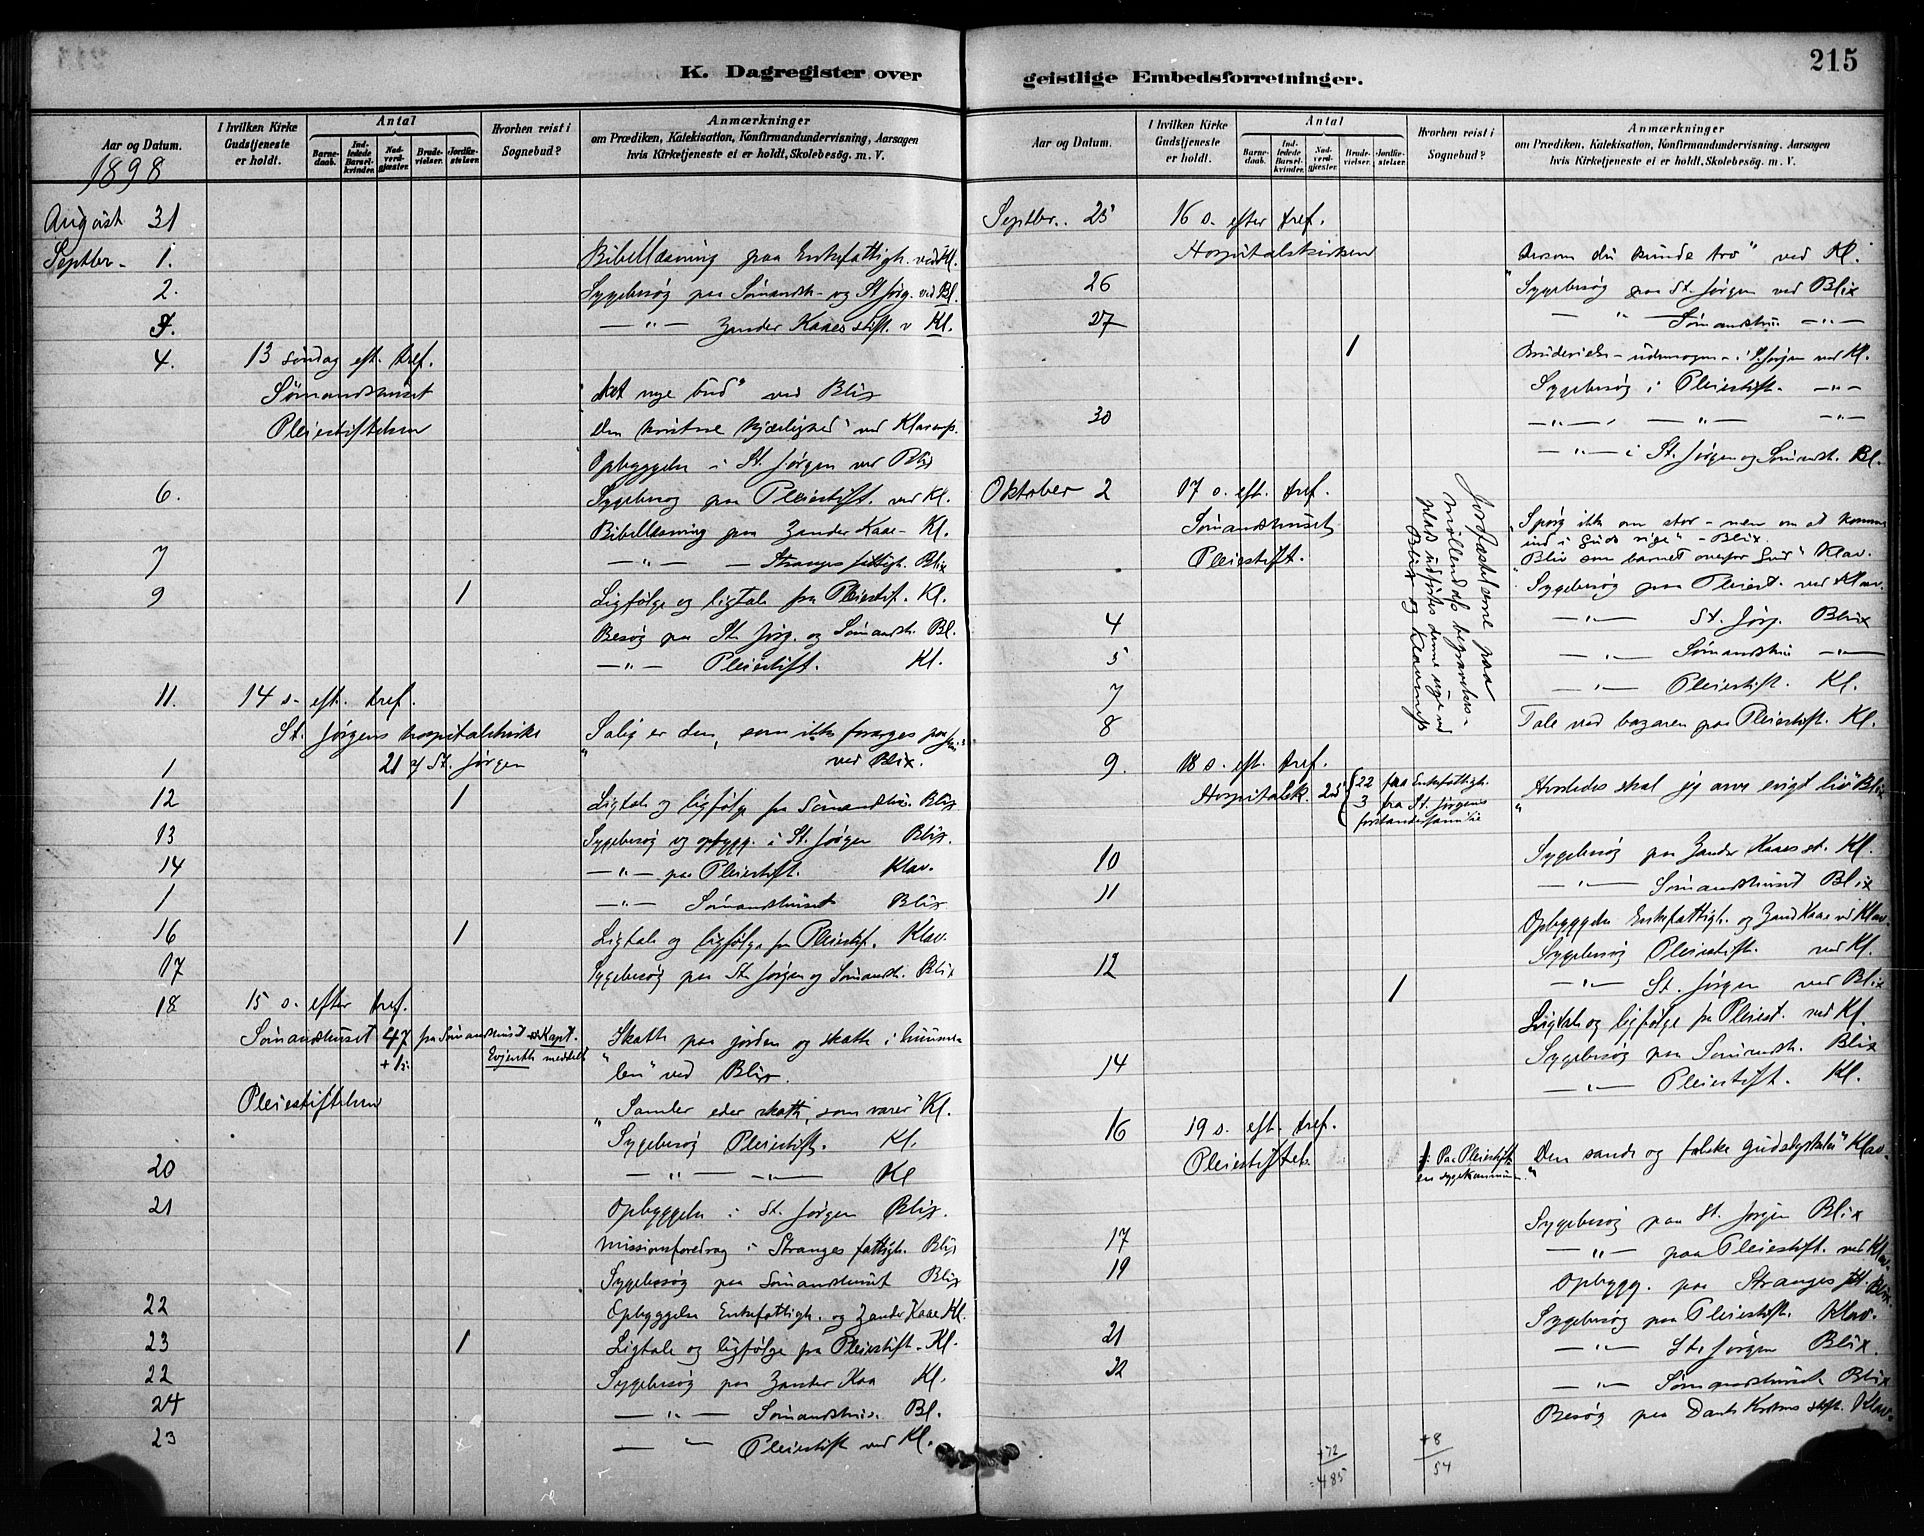 215
K. Dagregister over
geistlige Embedsforretninger.
Aar og Datum.
I hvilken Kirke Gudstjeneste er holdt.
Antal
Barnedaab.
Indledede Barselkvinder.
Nadverdgjæster.
Brudevielser.
Jordfæstelser.
Hvorhen reist i Sognebud?
Anmærkninger
om Prædiken, Katekisation, Konfirmandundervisning, Aarsagen
hvis Kirketjeneste ei er holdt, Skolebesøg. m. V.
1898
August 31
Septbr. 1. Bibellæsning paa Enkefattigh. ved Kl.
2. Sygebesøg paa Sømandsh. og St Jørg. ved Bl.
— " — Zander Kaaes stift. v Kl.
4. 13 søndag eft. tref.
Sømandshuset Det nye bud" ved Blix
Pleiestiftelsen Den kristne kjærlighed" ved Klavnæs.
Opbyggelse i St. Jørgen ved Blix
6. Sygebesøg paa Pleiestift. ved Kl.
Bibellæsning paa Zander Kaae - Kl.
7 — " — — Stranges fattigh. Blix
9 1 Ligfølge og ligtale fra Pleiestift. Kl.
Besøg paa St. Jørg. og Sømandsh. Bl.
— " — Pleiestift. Kl.
11. 14 s. eft. tref.
St. Jørgens hospitalskirke "Salig er den, som ikke forarges paa
1 21 af St. Jørgen ved Blix.
12 1 Ligtale og ligfølge fra Sømandshus. Blix
13 Sygebesøg og opbygg. i St. Jørgen Blix.
14 — " — paa Pleiestift. Klav.
1 — " — Sømandshuset Blix
16 1 Ligtale og ligfølge fra Pleiestift. Klav.
17 Sygebesøg paa St. Jørgen og Sømandsh. Blix
18 15 s. efter tref.
Sømandshuset 47 fra Sømandshuset Kapt. "Skatte paa jorden og skatte i himme
+1 Evjenth meddelt len" ved Blix.
Pleiestiftelsen "Samler eder skatte, som varer" Kl.
Sygebesøg Pleiestift. Kl.
20 — " — — " — Kl
21 Opbyggelse i St. Jørgen Blix.
Missionsforedrag i Stranges fattigh. Blix
Sygebesøg paa Sømandshuset Blix
22 Opbyggelse Enkefattigh. og Zander Kaae Kl.
23 1 Ligtale og ligfølge fra Pleiestift. Kl.
22 Sygebesøg paa Zander Kaa Kl.
24 — " — Sømandshus. Bl.
23 — " — Pleiestift ved Kl.
Aar og Datum.
I hvilken Kirke Gudstjeneste er holdt.
Antal
Barnedaab.
Indledede Barselkvinder.
Nadverdgjæster.
Brudevielser.
Jordfæstelser.
Hvorhen reist i Sognebud?
Anmærkninger
om Prædiken, Katekisation, Konfirmandundervisning, Aarsagen
hvis Kirketjeneste ei er holdt, Skolebesøg. m. V.
Septbr. 25 16 s. efter tref.
Hospitalskirken "Dersom du kunde tro" ved Kl.
26 Sygebesøg paa St. Jørgen ved Blix
27 — " — Sømandshus — " —
1 Brudevielse - udensogns - i St. Jørgen ved Kl.
Sygebesøg i Pleiestift. — " —
30 — " — — " — — " —
— " — i St. Jørgen og Sømandsh. Bl.
Oktober 2 17 s. eft. tref.
Sømandshuset "Spørg ikke om stor - men om at komme
ind i Guds rige" - Blix.
Pleiestift. "Bliv som barnet overfor Gud" Klav.
Sygebesøg paa Pleiest. ved Klav.
4 — " — St. Jørg. Blix
5 — " — Sømandshus — " —
7 — " — Pleiestift. Kl.
8 Tale ved bazaren paa Pleiestift. Kl.
Jordfæstelserne paa
Møllendals begravelses-
plads udførtes denne uge ved
Blix og Klavnæs
9. 18 s. eft. tref.
Hospitalsk. 25 { 22 fra Enkefattigh.
3 fra St. Jørgens
forstanderfamilie
"Hvorledes skal jeg arve evigt liv" Blix
10 Sygebesøg paa Zander Kaaes st. Kl.
11 — " — Sømandshuset Blix
Opbyggelse Enkefattigh. og Zand Kaae ved Klav.
Sygebesøg Pleiestift. ved Kl.
12 — " — St. Jørgen ved Blix
1 Ligtale og ligfølge fra Pleiest. ved Kl.
Sygebesøg paa Sømandsh. Blix
14 — " — Pleiestift. Kl.
16 19 s. eft. tref.
Pleiestiftels. 1 Paa Pleiestift. en sygekommunion. "Den sande og falske gudsdyrkelse" Klav.
Sygebesøg paa St. Jørgen Blix
17 — " — paa Pleiestift. ved Klav.
19 Opbygg. paa Stranges ft. Blix.
Sygebesøg paa Pleiestift. Klav.
21 — " — St. Jørgen Blix.
22 — " — Sømandshuset Blix
Besøg paa Danks stift. Klav.
+72
=485
+8
54